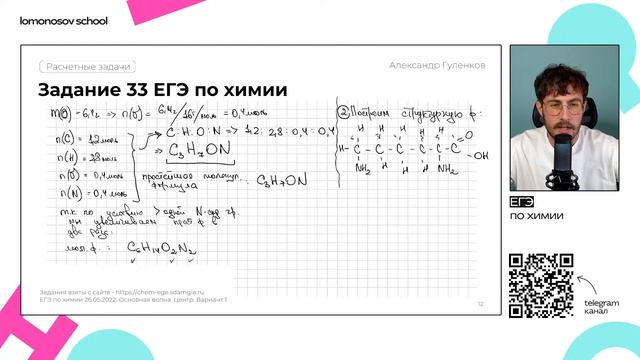 lomonosov school
Расчетные задачи
Александр Гуленков
Задание 33 ЕГЭ по химии
m(O) = 6,4 г => n(O) = 6,4 г / 16 г/моль = 0,4 моль
n(C) = 1,2 моль
n(H) = 2,8 моль
n(O) = 0,4 моль
n(N) = 0,4 моль
C : H : O : N => 1,2 : 2,8 : 0,4 : 0,4
=> C3H7ON
простейшая молекул. формула : C3H7ON
т.к по условию > одной N-сод гр.
мы увеличиваем прост. ф в
два раза.
мол. ф. : C6H14O2N2
② Построим структурную ф:
H H H H H
H - C - C - C - C - C - C = O
OH
NH2 H H H NH2
Задания взяты с сайте - https://chem-ege.sdamgia.ru
ЕГЭ по химии 26.05.2022. Основная волна. Центр. Вариант 1
12
ЕГЭ
ПО ХИМИИ
telegram
канал